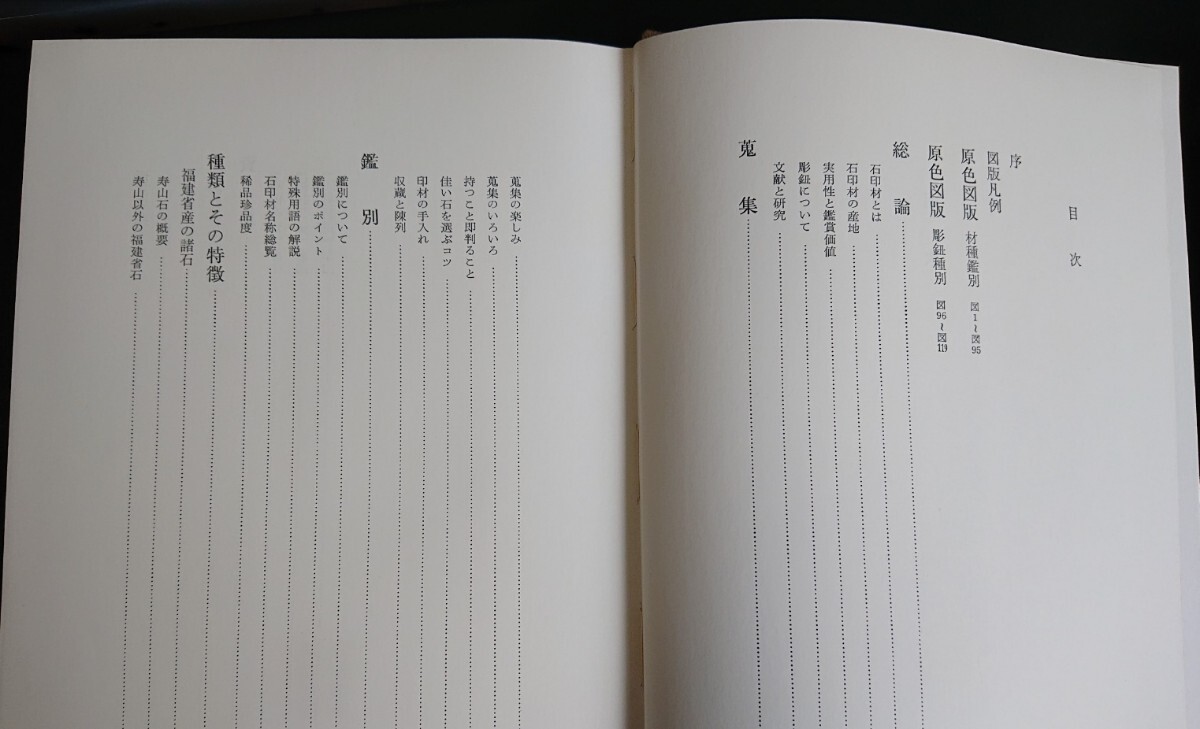 目次
序
図版凡例
原色図版 材種鑑別 図1～図95
原色図版 彫鈕種別 図96～図119
総論
石印材とは
石印材の産地
実用性と鑑賞価値
彫鈕について
文献と研究
蒐集
蒐集の楽しみ
蒐集のいろいろ
持つこと即判ること
佳い石を選ぶコツ
印材の手入れ
収蔵と陳列
鑑別
鑑別について
鑑別のポイント
特殊用語の解説
石印材名称総覧
稀品珍品度
種類とその特徴
福建省産の諸石
寿山石の概要
寿山以外の福建省石